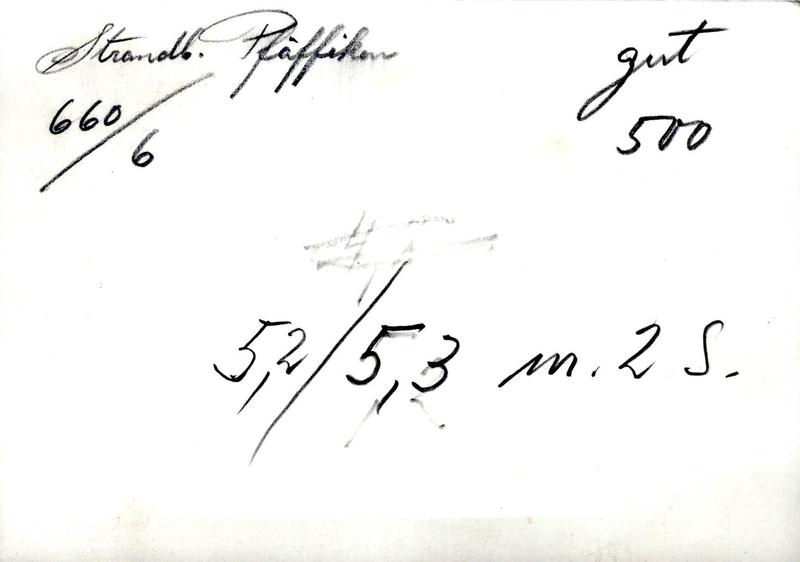 Strandb. Pfäffikon
gut
660/6
500
5,2/5,3 m. 2 S.